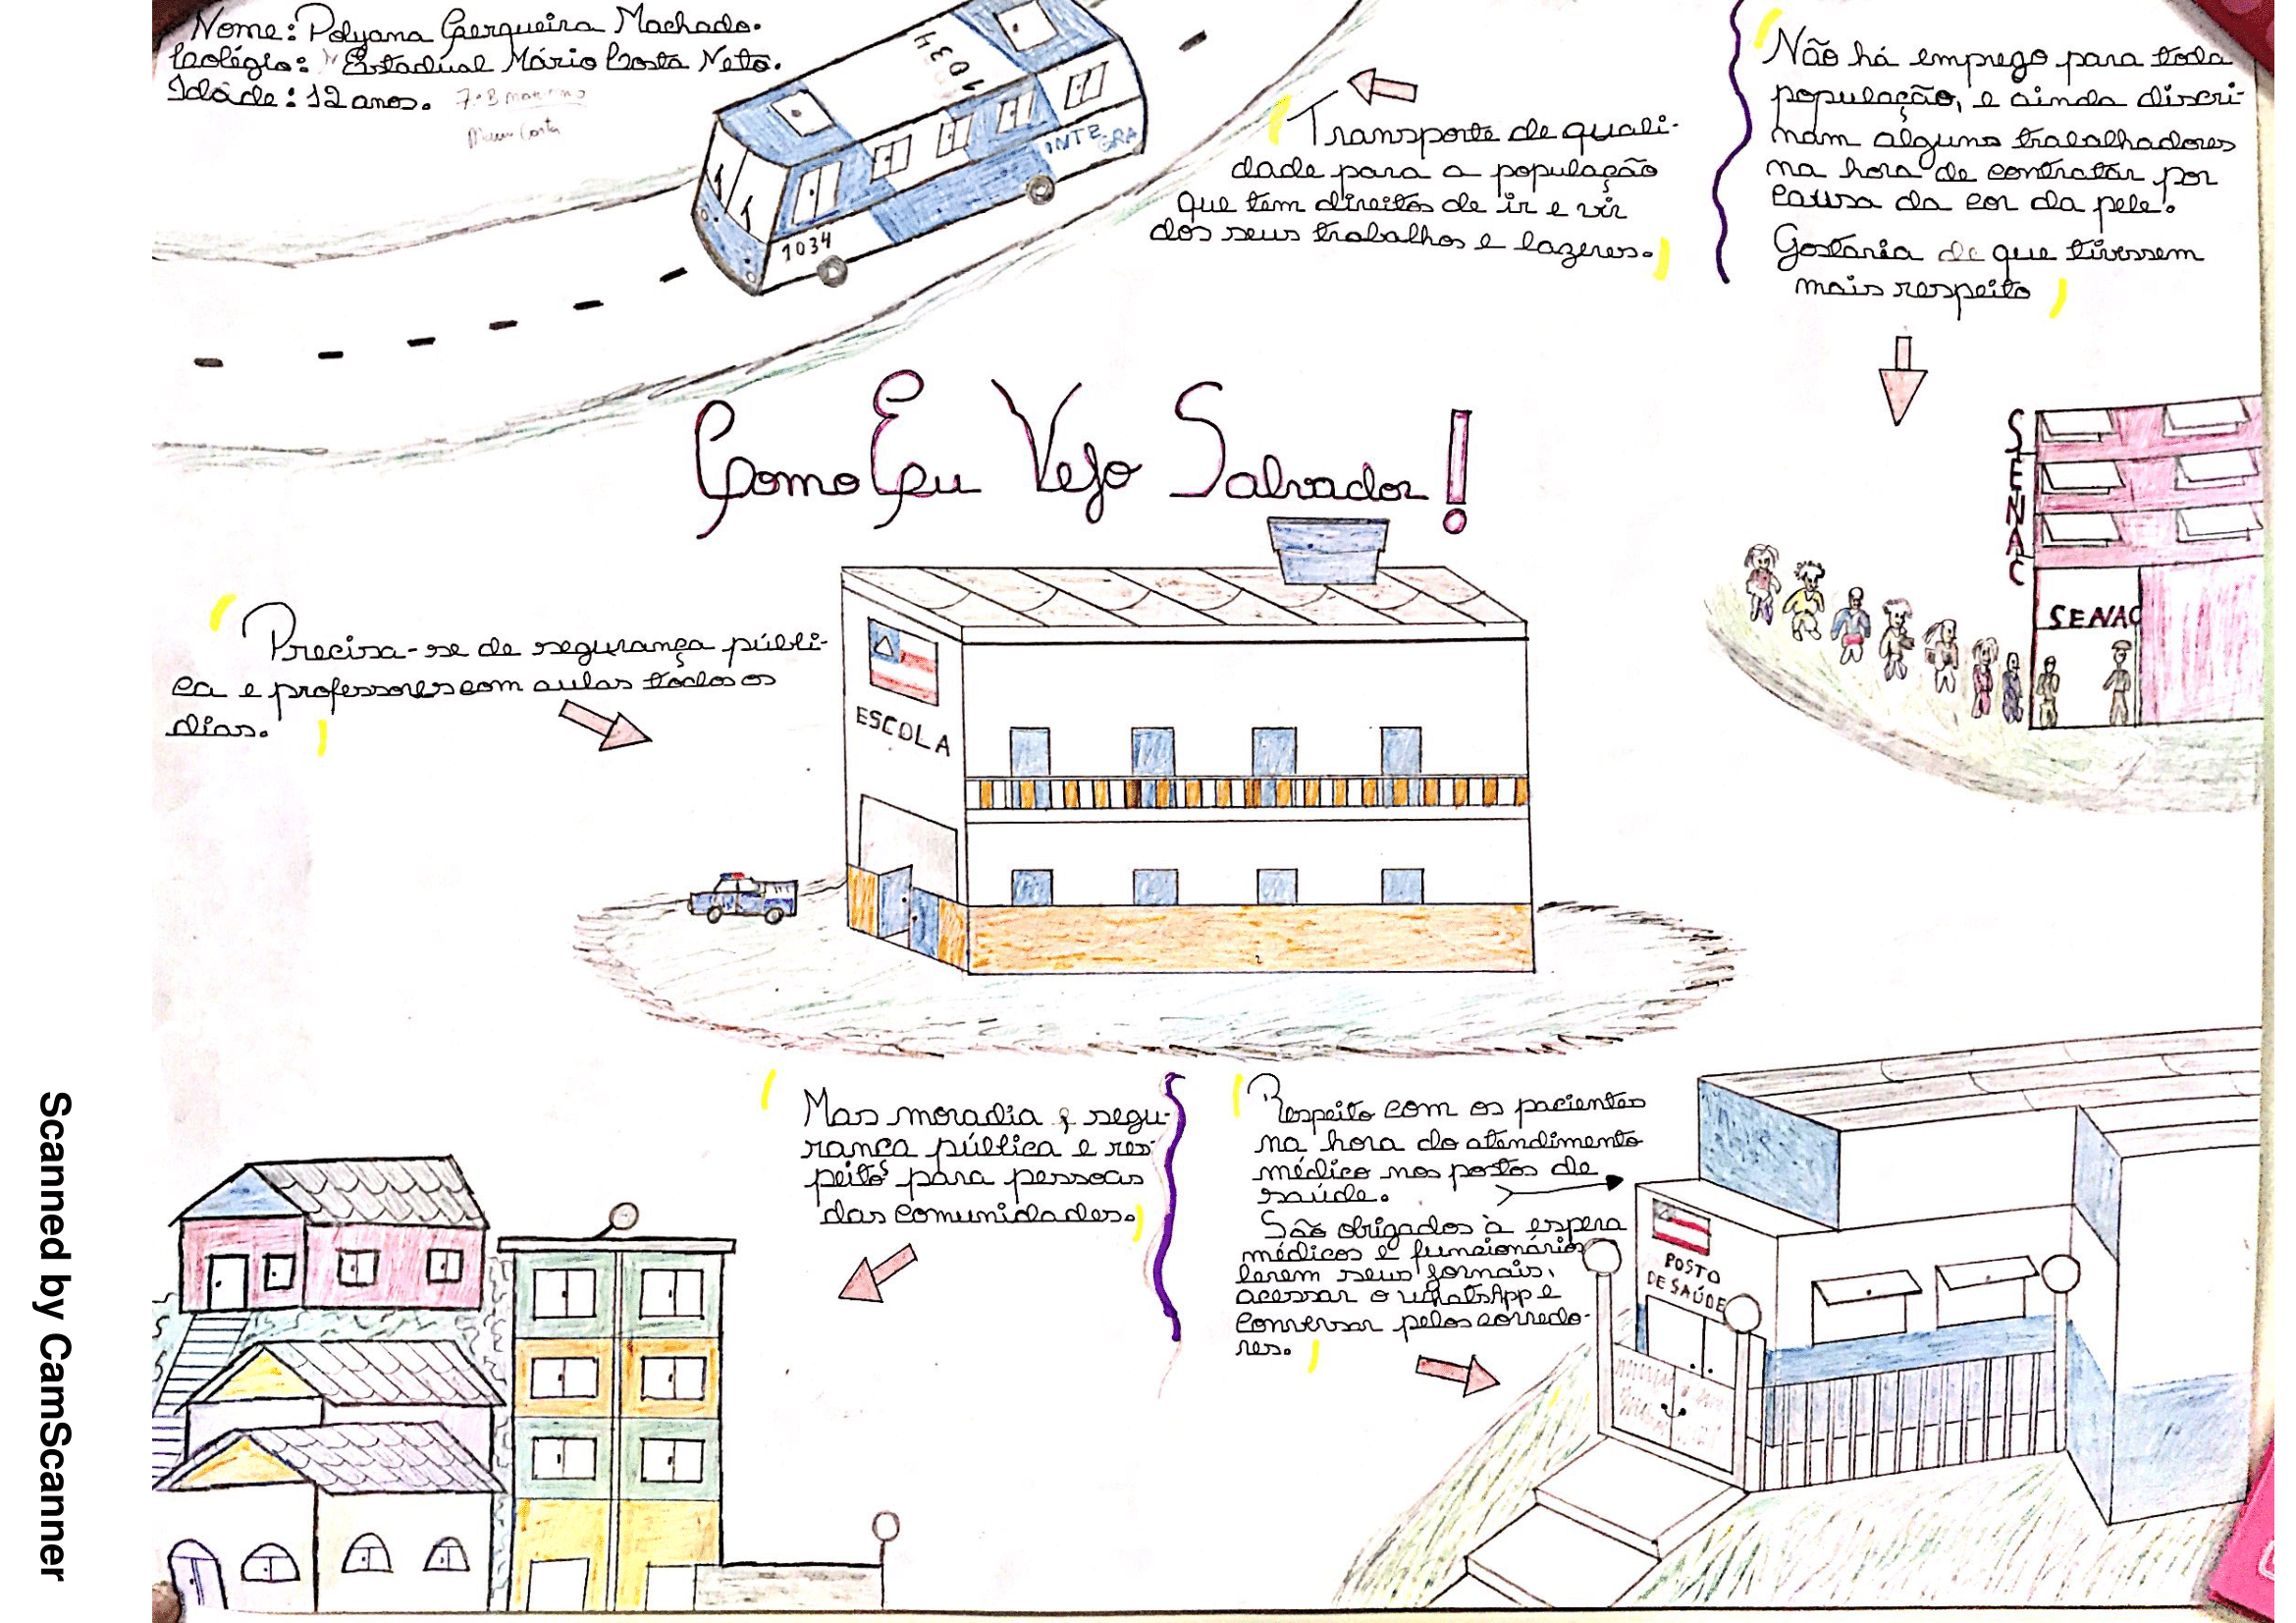 Nome: Polyana Cerqueira Machado.
Colégio: Estadual Mário Costa Neto.
Idade: 12 anos.
1034
INTEGRA
1034
Transporte de quali-
dade para a população
que tem direitos de ir e vir
dos seus trabalhos e lazeres.
Não há emprego para toda
população, e ainda discri-
mam alguns trabalhadores
na hora de contratar por
causa da cor da pele.
Gostaria de que tivessem
mais respeito
Como Eu Vejo Salvador!
SENAC
SENAC
Precisa-se de segurança públi-
ca e professores com aulas todos os
dias.
ESCOLA
Mas moradia, segu-
rança pública e res-
peito para pessoas
das comunidades.
Respeito com os pacientes
na hora do atendimento
médico nos postos de
saúde.
São obrigados à espera
médicos e funcionários
lerem seus jornais,
acessar o whatsApp e
conversar pelos corredo-
res.
POSTO
DE SAÚDE
Scanned by CamScanner